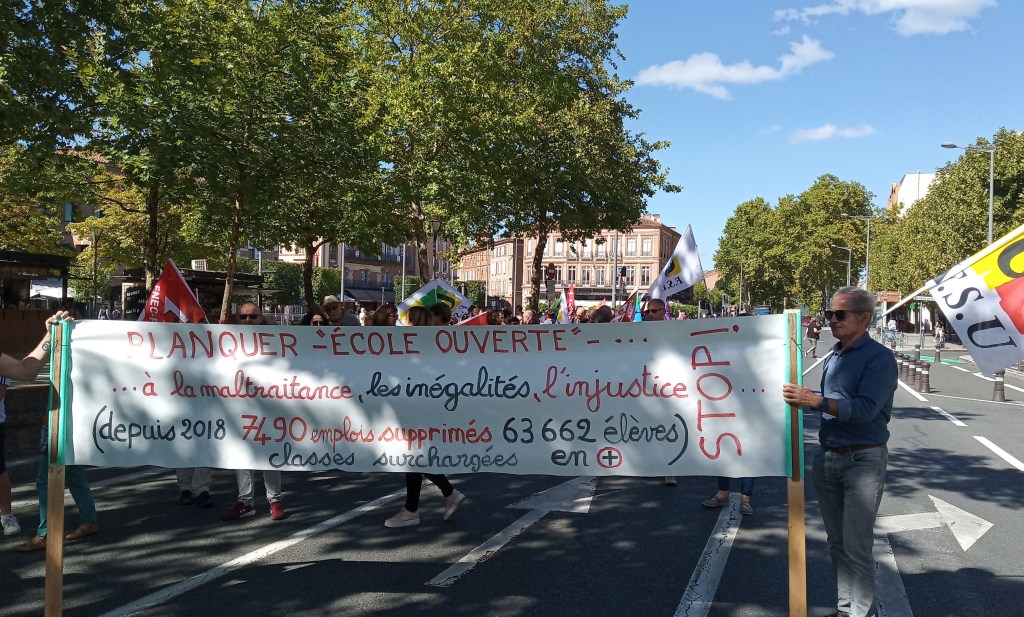 BLANQUER -ÉCOLE OUVERTE"- ...
... à la maltraitance, les inégalités, l'injustice ...
(depuis 2018 7490 emplois supprimés 63 662 élèves)
classes surchargées en +
STOP!
F.S.U.